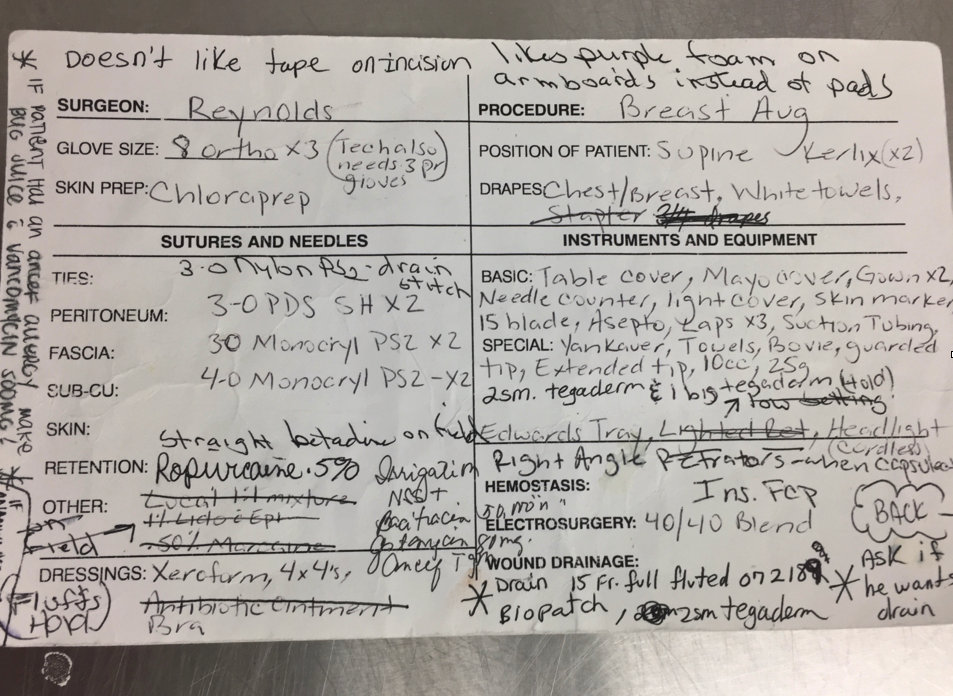 Doesn't like tape on incision
likes purple foam on
armboards instead of pads
SURGEON: Reynolds
PROCEDURE: Breast Aug
GLOVE SIZE: 8 ortho x3 (Tech also
needs 3 pr
gloves
POSITION OF PATIENT: Supine Kerlix (x2)
SKIN PREP: Chloraprep
DRAPES Chest/Breast, White towels,
Stapler 3/4 drapes
SUTURES AND NEEDLES
TIES: 3-0 Nylon PS2-drain
stitch
PERITONEUM: 3-0 PDS SH X2
FASCIA: 30 Monocryl PS2 X2
SUB-CU: 4-0 Monocryl PS2-X2
SKIN:
Straight betadine on field
RETENTION: Ropivicaine .5%
OTHER: Local 1:1 mixture
1% Lido c Epi
.50% Marcaine
on
Field
Irrigation
NSS +
50,000 u
Bacitracin
Gentamycin 80mg
Ancef 1gm
DRESSINGS: Xeroform, 4x4's,
Antibiotic Ointment
Bra
Fluffs
Hold
INSTRUMENTS AND EQUIPMENT
BASIC: Table cover, Mayo cover, Gown x2,
Needle counter, light cover, skin marker
15 blade, Asepto, Laps x3, Suction Tubing,
SPECIAL: Yankauer, Towels, Bovie, guarded
tip, Extended tip, 10cc, 25g
2 sm. tegaderm & 1 big tegaderm (Hold)
Edwards Tray, Lighted Ret, Headlight
(cordless)
Right Angle Retractors - when capsulec
HEMOSTASIS: Ins. Fcp
ELECTROSURGERY: 40/40 Blend
BACK-
WOUND DRAINAGE:
* Drain 15 Fr. full fluted on 2189
Biopatch, 2sm tegaderm
* Ask if
he wants
drain
* IF Patient Has an ancef allergy make
BUG Juice c vancomycin 500mg!
* IF